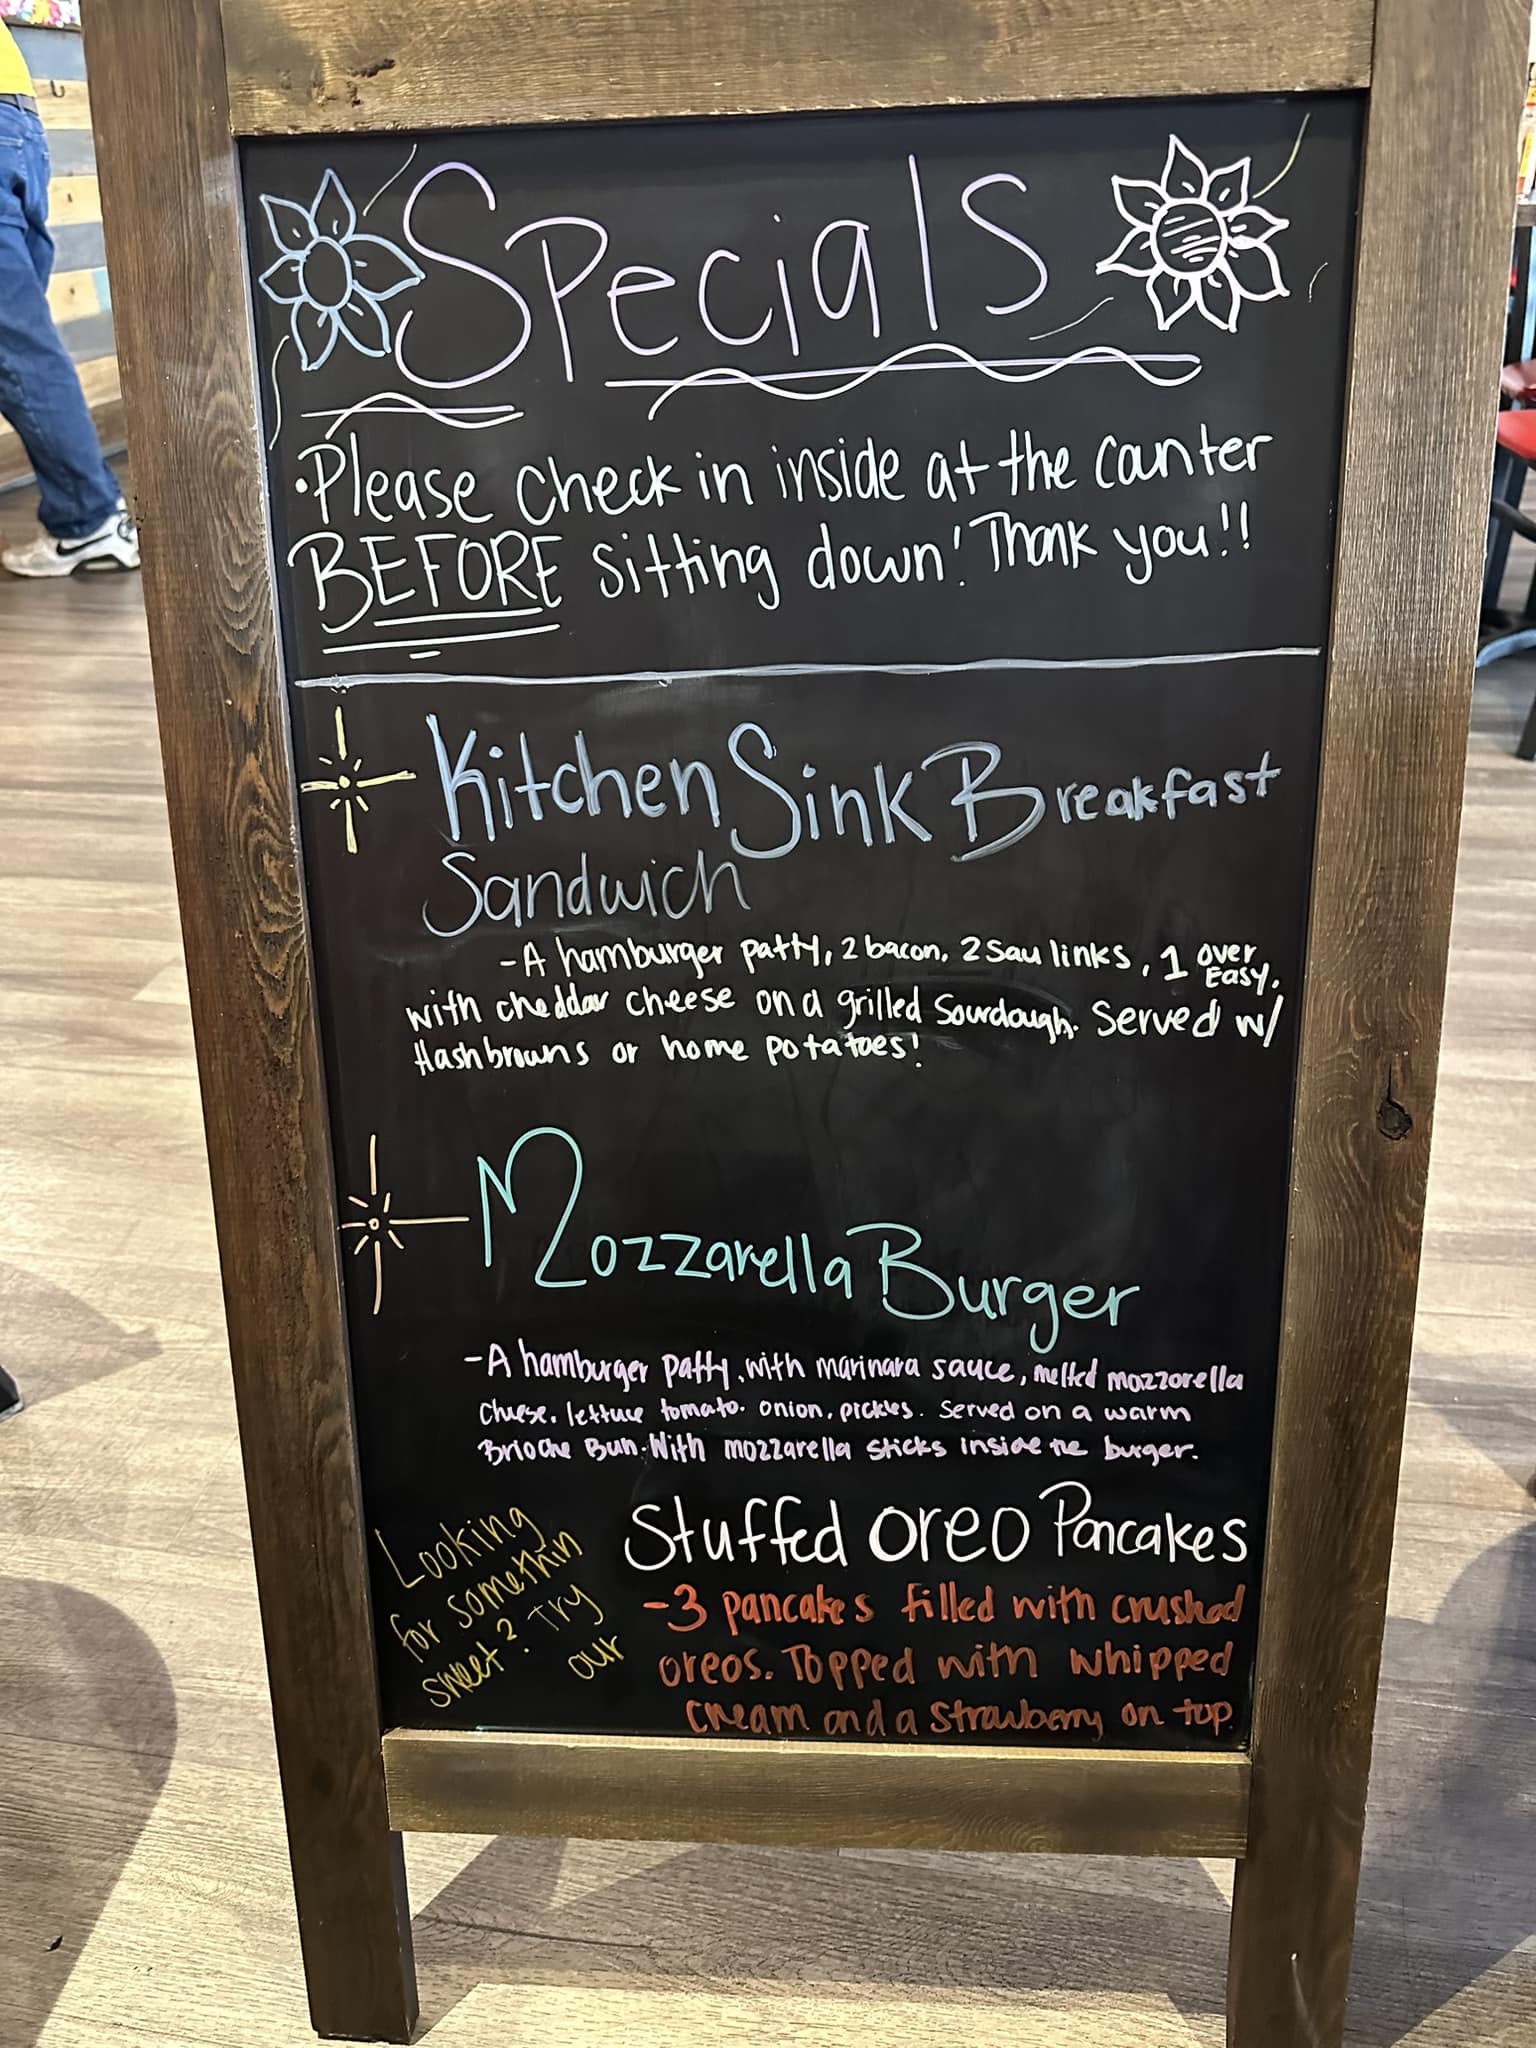 Specials
• Please check in inside at the counter
BEFORE sitting down! Thank you!!
Kitchen Sink Breakfast
Sandwich
- A hamburger patty, 2 bacon, 2 sau links, 1 over easy,
with cheddar cheese on a grilled sourdough. Served w/
Hashbrowns or home potatoes!
Mozzarella Burger
- A hamburger patty, with marinara sauce, melted mozzarella
cheese, lettuce tomato, onion, pickles. Served on a warm
Brioche Bun. With mozzarella sticks inside the burger.
Looking
for somethin
sweet? Try
our
Stuffed Oreo Pancakes
- 3 pancakes filled with crushed
oreos. Topped with whipped
cream and a strawberry on top.